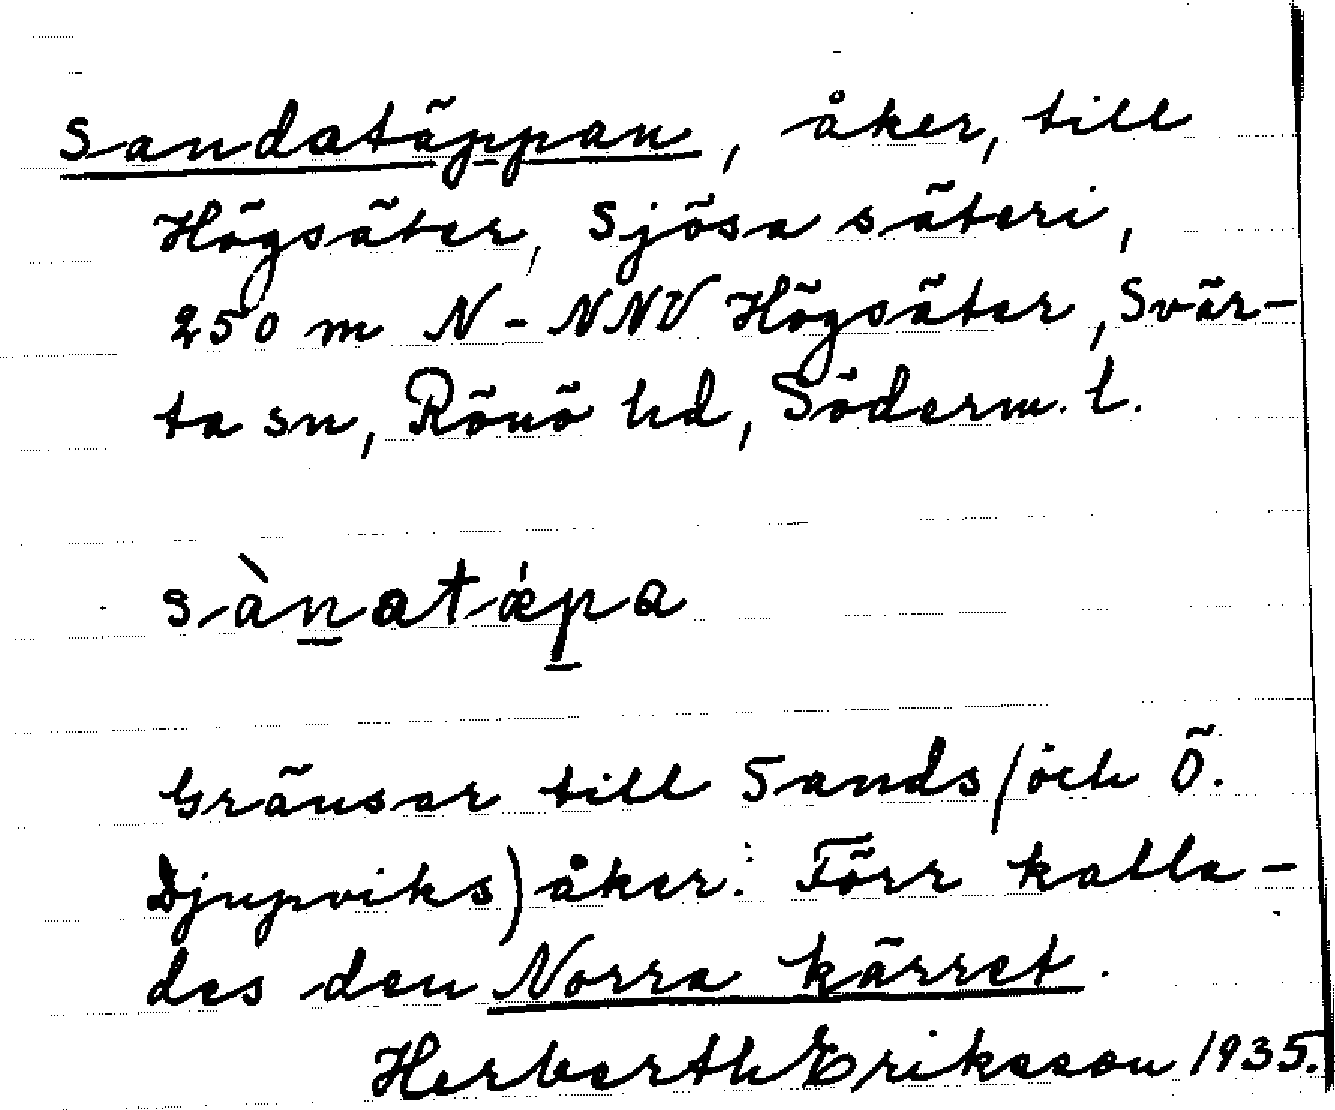 Sandatäppan, åker, till
Högsäter, Sjösa säteri,
250 m N-NNV Högsäter, Svär-
ta sn, Rönö hd, Söderm. l.
sànatǽpa
Gränsar till Sands (och Ö.
Djupviks) åker. Förr kalla-
des den Norra kärret.
Herberth Eriksson 1935.